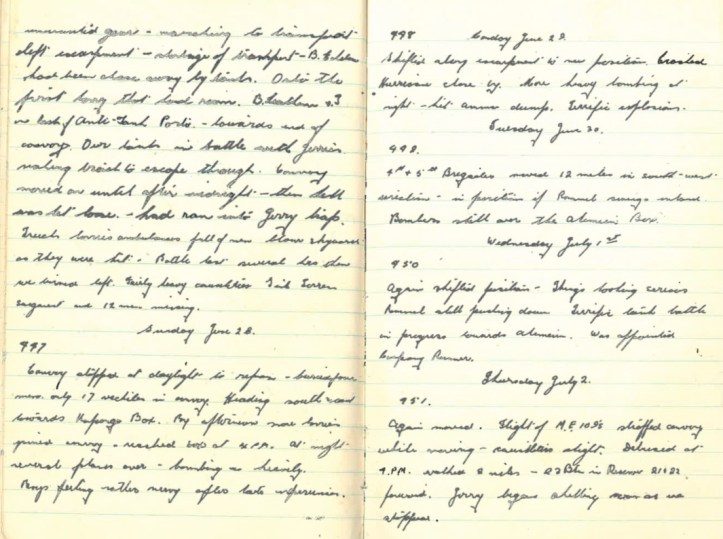 gear - marching to transport
left escarpment - shortage of transport - B. Echelon
had been close away by tanks. Onto the
first lorry that had room. B.
lack of Anti-Tank Ports. - towards end of
convoy. Our tanks in battle with Jerries
making to escape though. Convoy
moved on until after midnight - then hell
was let loose. - had ran into Jerry trap.
Trucks lorries ambulances full of men blown skywards
as they were hit. - Battle last several hrs then
we turned left. Fairly heavy casualties
Sergeant and 12 men missing.
Sunday June 28.
947
Convoy stopped at daylight to reform -
men. only 17 vechiles in convoy. Heading south east
towards Kaponga Box. By afternoon more lorries
joined convoy - reached 200 at 4 P.M. At night
several planes over - bombing us heavily.
Boys feeling rather after last
948 Monday June 29.
Shifted along escarpment to new position. Crashed
Hurricane close by. More heavy bombing at
night - hit ammo dump. Terrific explosion.
Tuesday June 30.
949.
4th & 5th Brigades moved 12 miles in south-west
direction - in position if Rommel swings inland.
Bombers still over the Alamein Box.
Wednesday July 1st
950
Again shifted position - Things looking serious
Rommel still pushing down. Terrific tank battle
in progress towards Alamein. Was appointed
Company Runner.
Thursday July 2.
951.
Again moved. Flight of M.E 109s straffed convoy
while moving - casualties slight. Debussed at
P.M. walked 2 miles - 23 Btln in Reserve 21 & 22
forward. Jerry began shelling soon as we
stopped.